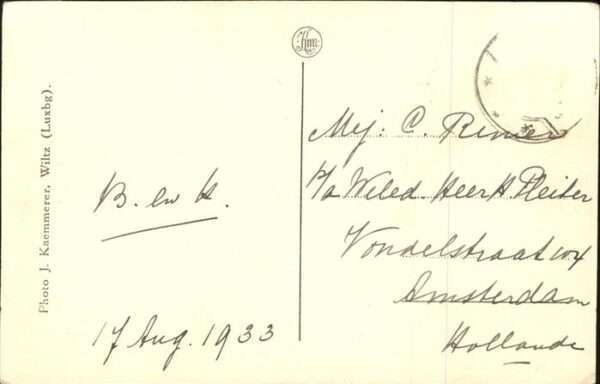 Photo J. Kaemmerer, Wiltz (Luxbg).
B. en H.
17 Aug. 1933
Mej: C. Remer
p/a Weled. Heer H. Pleiter
Vondelstraat 104
Amsterdam
Hollande